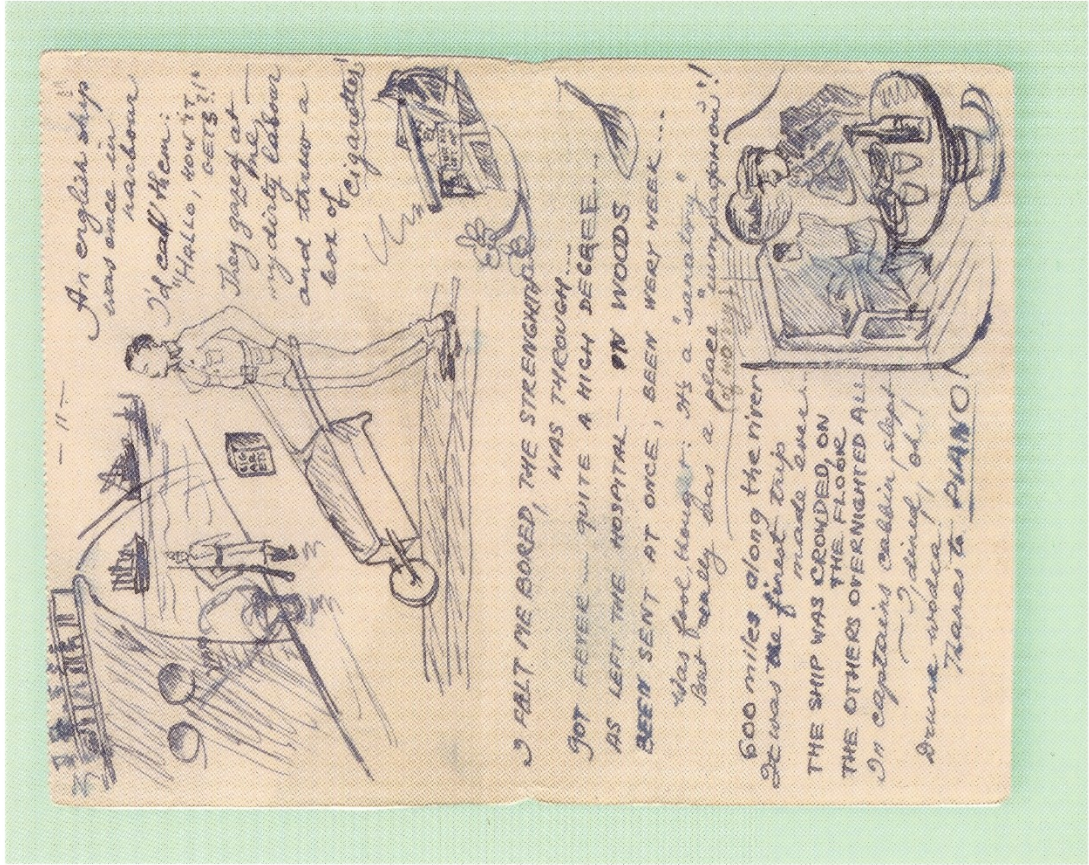 — 11 —
An english ship
was once in
harbour
I'd call them:
"HALLO, HOW IT
GETS?!"
They gazed at
my dirty labour
and threw a
box of
cigarettes!
CIGA
RET
ES
I FELT ME BORED, THE STRENGHTH
WAS THROUGH...
GOT FEVER — QUITE A HIGH DEGREE...
AS LEFT THE HOSPITAL — IN WOODS
BEEN SENT AT ONCE, BEEN WERY WEEK...
Was fool, thought: it's a "sanatory"
But really was a place "rumpaponow"!
600 miles along the river
It was the finest trip
made ever.
THE SHIP WAS CROWDED, ON
THE FLOOR
THE OTHERS OVERNIGHTED ALL
In captains cabbin slept
— I dined, oh!
Drunk wodca!
Thanks to PIANO!